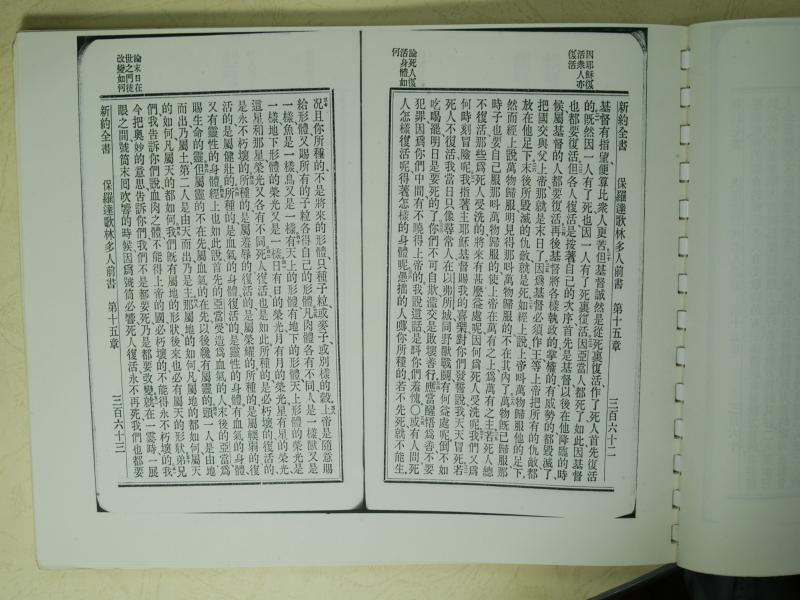 因耶穌復
活衆人亦
復活
新約全書 保羅達歌林多人前書 第十五章 三百六十二
基督有指望便算比衆人更苦但基督誠然是從死裏復活作了死人首先復活
的既然因一人有了死也因一人有了死裏復活因亞當人都死了如此因基督
也都要復活但各人復活是按著自己的次序首先是基督以後在他降臨的時
候屬基督的人都要復活再後基督將各樣執政的掌權的有威勢的都毀滅了
把國交與父上帝那就是末日了因爲基督必須作王等上帝把所有的仇敵都
放在他足下末後所毀滅的仇敵就是死如經上說上帝叫萬物歸服他的足下
然而經上說萬物歸服明見得那叫萬物歸服的不在其內了萬物既已歸服那
時子也要自己服那叫萬物歸服的使上帝在萬有之上爲萬有之主若死人總
不復活那些爲死人受洗的將來有甚麽益處呢因何爲死人受洗呢我們又爲
何時刻冒險呢我指著主耶穌基督賜我的喜樂對你們發誓說我天天冒死若
死人不復活我當日只像尋常人在以弗所城同野獸戰鬭有何益處呢倒不如
吃喝罷明日是要死的了你們不可自欺濫交是敗壞善行應當醒悟爲善不要
犯罪因爲你們中間有不曉得上帝的我說這話是叫你們羞愧〇或有人問死
人怎樣復活呢得著怎樣的身體呢愚擋的人哪你所種的若不先死就不能生
論死人復
活身體如
何
况且你所種的不是將來的形體只種子粒或麥子或別樣的穀上帝是隨意賜
給形體又賜所有的子粒各得自己的形體凡肉體各有不同人是一樣獸又是
一樣魚是一樣鳥又是一樣有天上的形體有地下的形體天上形體的榮光是
一樣地下形體的榮光又是一樣日有日的榮光月有月的榮光星有星的榮光
這星和那星榮光又各有不同死人復活也是如此所種的是必朽壞的復活的
是永不朽壞的所種的是屬羞辱的復活的是屬榮耀的所種的是屬輭弱的復
活的是屬健壯的所種的是血氣的身體復活的是靈性的身體有血氣的身體
又有靈性的身體經上也如此說首先的亞當受造爲血氣的人末後的亞當爲
賜生命的靈但屬靈的不在先屬血氣的在先以後纔有屬靈的頭一人是由地
而出乃屬土第二人是由天而出乃是主那屬土的如何凡屬地的都如何屬天
的如何凡屬天的都如何我們既有屬地的形狀後來也必有屬天的形狀弟兄
們我告訴你們說血肉之體不能得上帝的國必朽壞的不能得永不朽壞的我
今把奥妙的意思告訴你們我們不是都要死乃是都要改變就在一霎時一展
眼之間號筒末囘吹響的時候因爲號筒必響死人復活永不再死我們也都要
新約全書 保羅達歌林多人前書 第十五章 三百六十三
論末日在
世之門徒
改變如何